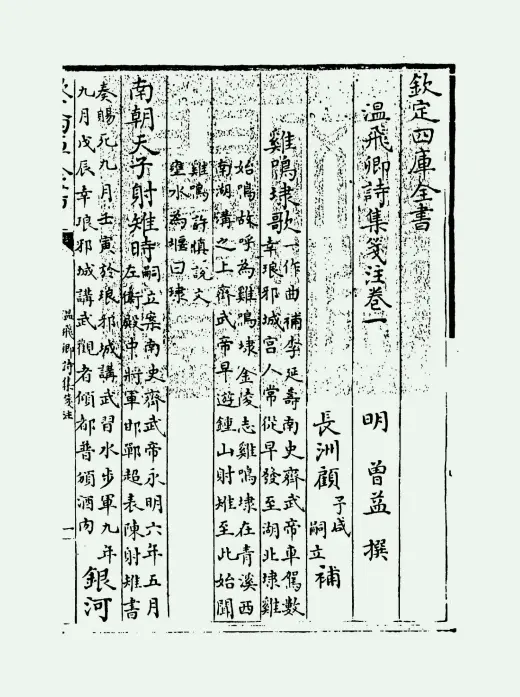 欽定四庫全書
温飛卿詩集箋注卷一
明 曾益 撰
長洲顧 子咸 嗣立 補
雞鳴埭歌 一作曲補李延壽南史齊武帝車駕數
幸琅邪城宫人常從早發至湖北埭雞
始鳴故呼為雞鳴埭金陵志雞鳴埭在青溪西
南湖溝之上齊武帝早遊鍾山射雉至此始聞
雞鳴許慎說文
壅水為堰曰埭
南朝天子射雉時 嗣立案南史齊武帝永明六年五月
左衛殿中將軍邯鄲超表陳射雉書
奏賜死九月壬寅於琅邪城講武習水步軍九年
九月戊辰幸琅邪城講武觀者傾都普頒酒肉 銀河
温飛卿詩集箋注
一